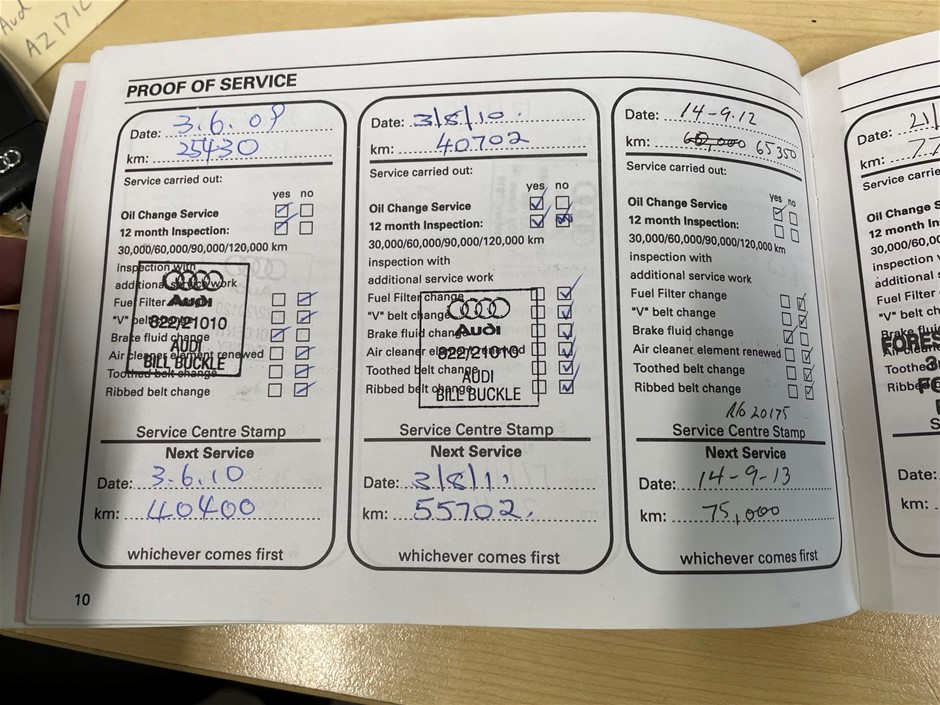 Aud
AZ171C
PROOF OF SERVICE
Date: 3.6.09
km: 25430
Service carried out:
yes no
Oil Change Service
12 month Inspection:
30,000/60,000/90,000/120,000 km
inspection with
additional service work
Fuel Filter change
"V" belt change
Brake fluid change
Air cleaner element renewed
Toothed belt change
Ribbed belt change
Audi
822/21010
AUDI
BILL BUCKLE
Service Centre Stamp
Next Service
Date: 3.6.10
km: 40400
whichever comes first
Date: 3/8/10.
km: 40702
Service carried out:
yes no
Oil Change Service
12 month Inspection:
30,000/60,000/90,000/120,000 km
inspection with
additional service work
Fuel Filter change
"V" belt change
Brake fluid change
Air cleaner element renewed
Toothed belt change
Ribbed belt change
Audi
822/21010
AUDI
BILL BUCKLE
Service Centre Stamp
Next Service
Date: 3/8/11.
km: 55702.
whichever comes first
Date: 14-9.12
km: 65350
Service carried out:
yes no
Oil Change Service
12 month Inspection:
30,000/60,000/90,000/120,000 km
inspection with
additional service work
Fuel Filter change
"V" belt change
Brake fluid change
Air cleaner element renewed
Toothed belt change
Ribbed belt change
R/o 20175
Service Centre Stamp
Next Service
Date: 14-9-13
km: 75,000
whichever comes first
Date: 21/
km: 77
Service carrie
Oil Change S
12 month In
30,000/60,00
inspection
additional s
Fuel Filter c
"V" belt ch
Brake flui
Toothed
Ribbed
FORES
Date:
km:
10